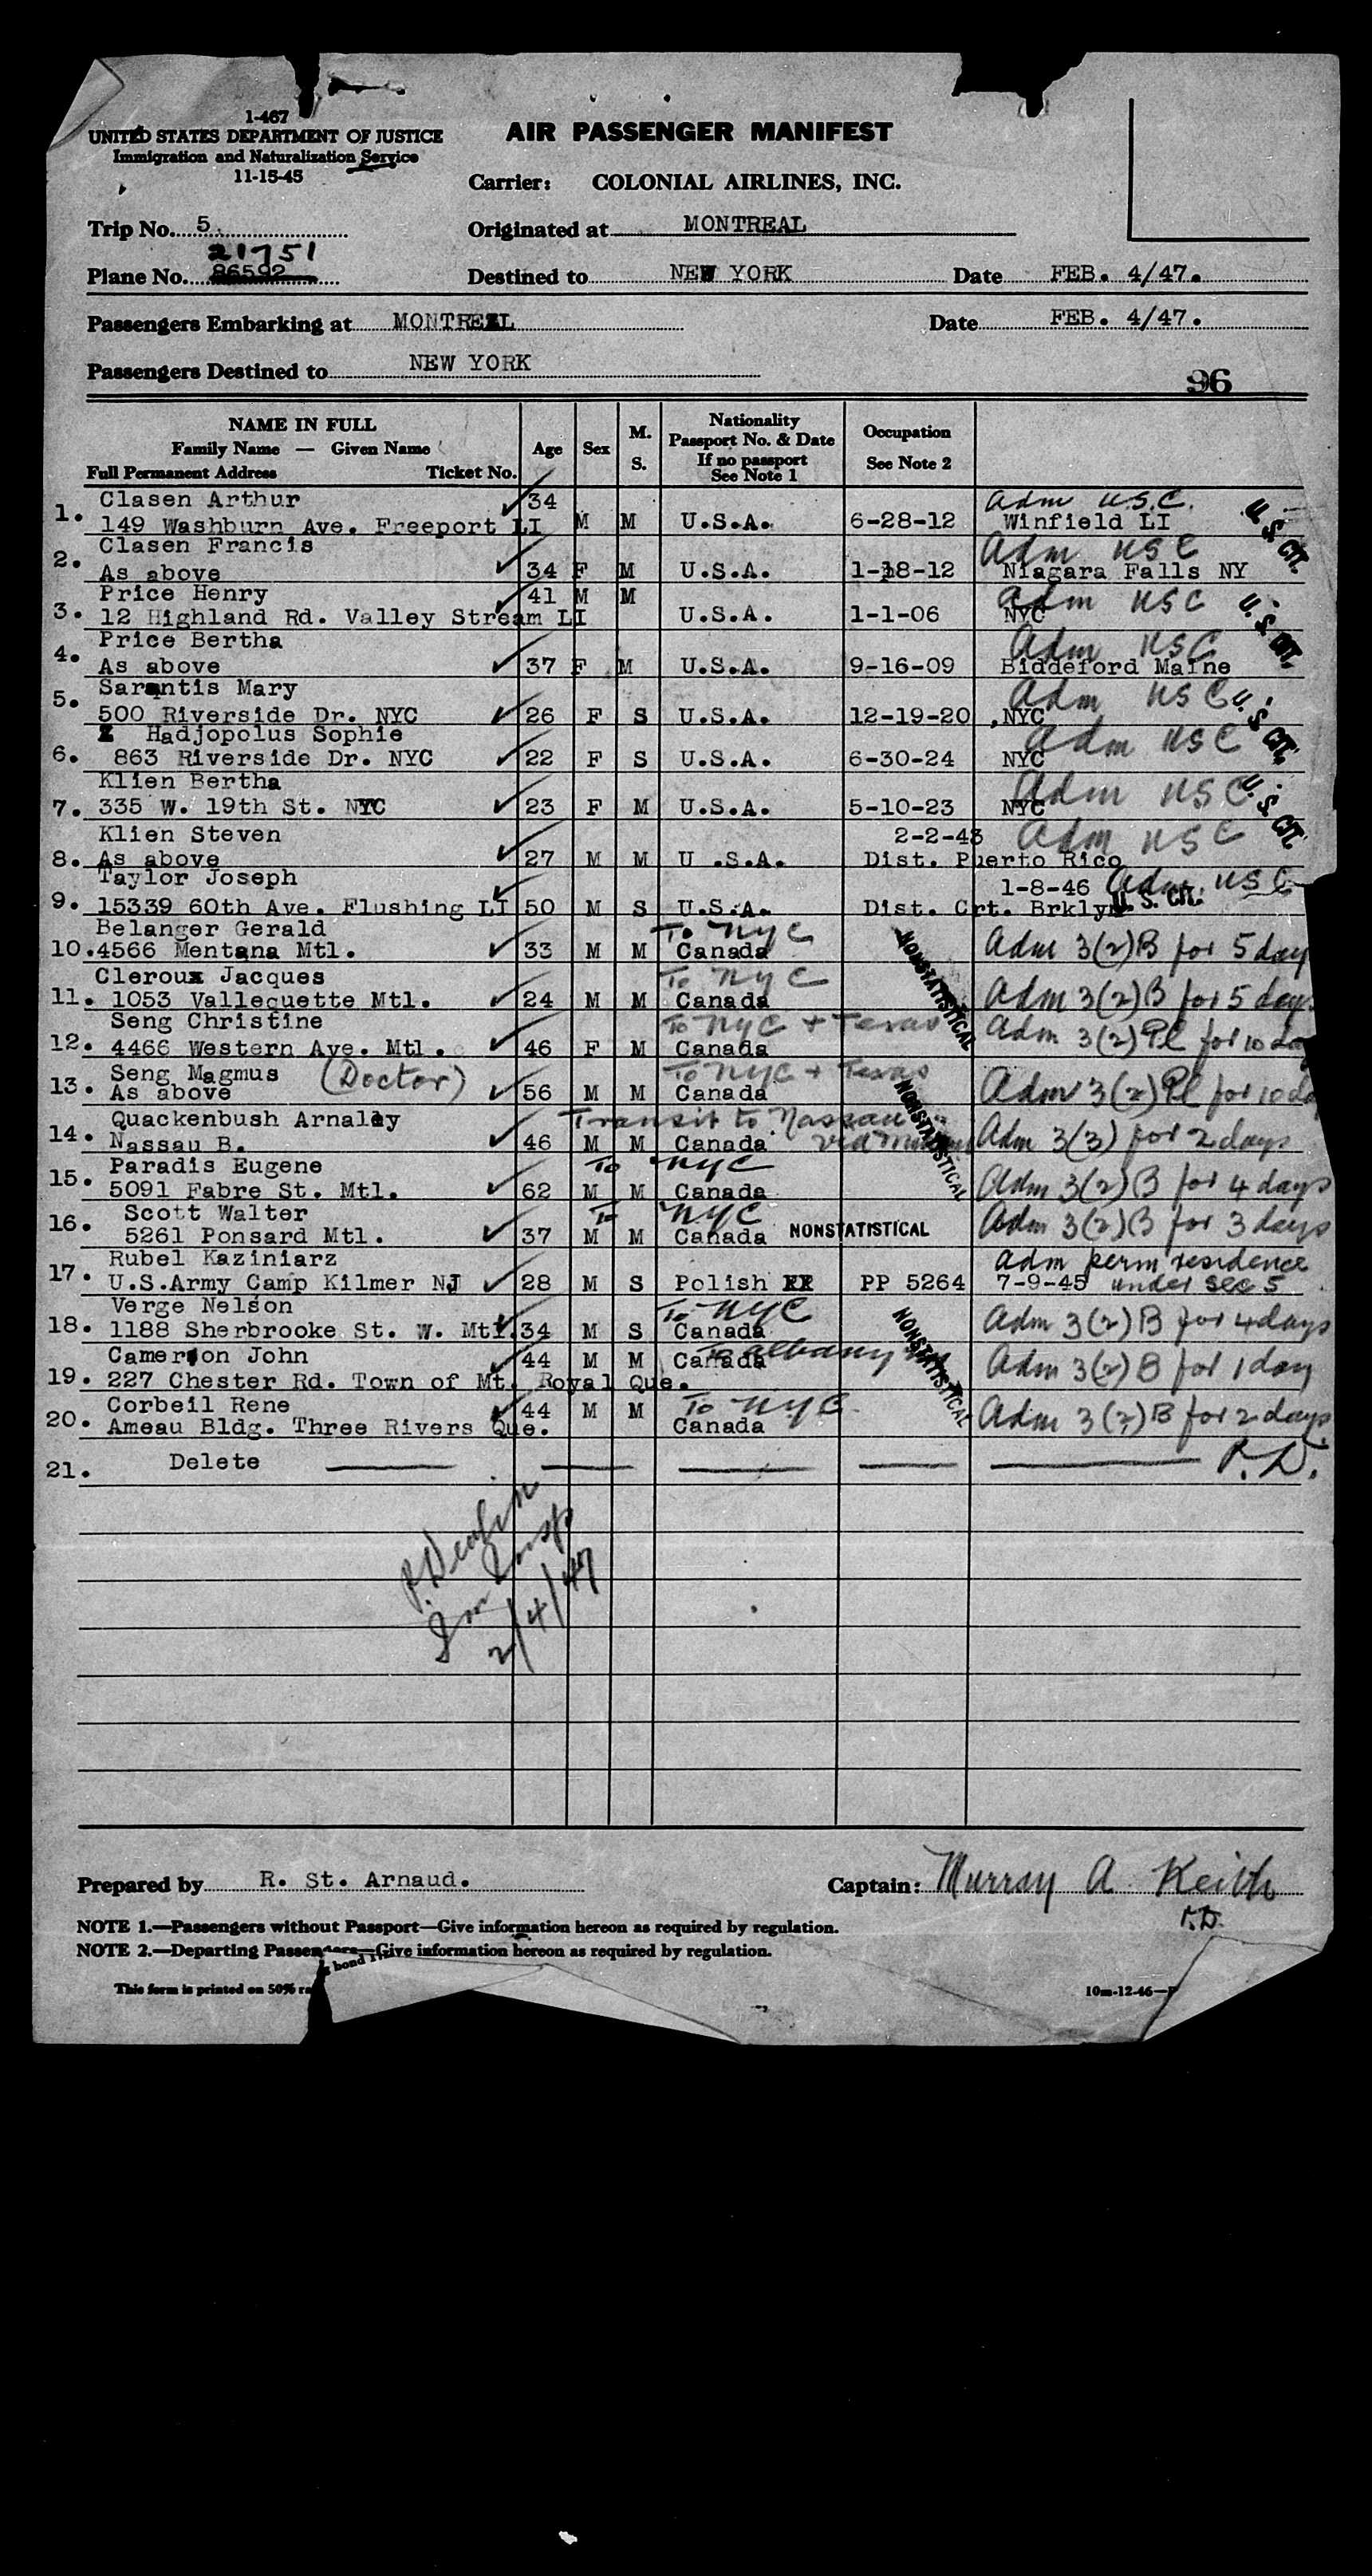 1-467
UNITED STATES DEPARTMENT OF JUSTICE
Immigration and Naturalization Service
11-15-45
AIR PASSENGER MANIFEST
Carrier: COLONIAL AIRLINES, INC.
Trip No. 5. Originated at MONTREAL
21751
Plane No. 86592 Destined to NEW YORK Date FEB. 4/47.
Passengers Embarking at MONTREAL Date FEB. 4/47.
Passengers Destined to NEW YORK
96
NAME IN FULL
Family Name — Given Name
Full Permanent Address Ticket No.
Age Sex M. S.
Nationality
Passport No. & Date
If no passport
See Note 1
Occupation
See Note 2
Clasen Arthur 34 Adm U.S.C.
1. 149 Washburn Ave. Freeport LI M M U.S.A. 6-28-12 Winfield LI U.S. CIT.
Clasen Francis Adm USC
2. As above 34 F M U.S.A. 1-18-12 Niagara Falls NY
Price Henry 41 M M Adm USC
3. 12 Highland Rd. Valley Stream LI U.S.A. 1-1-06 NYC U.S. CIT.
Price Bertha Adm USC
4. As above 37 F M U.S.A. 9-16-09 Biddeford Maine
Sarantis Mary Adm USC
5. 500 Riverside Dr. NYC 26 F S U.S.A. 12-19-20 NYC U.S. CIT.
Hadjopolus Sophie Adm USC
6. 863 Riverside Dr. NYC 22 F S U.S.A. 6-30-24 NYC
Klien Bertha Adm USC
7. 335 W. 19th St. NYC 23 F M U.S.A. 5-10-23 NYC U.S. CIT.
Klien Steven 2-2-43 Adm USC
8. As above 27 M M U .S.A. Dist. Puerto Rico
Taylor Joseph 1-8-46 Adm USC
9. 15339 60th Ave. Flushing LI 50 M S U.S.A. Dist. Crt. Brklyn U.S. CIT.
Belanger Gerald To NYC
10. 4566 Mentana Mtl. 33 M M Canada NONSTATISTICAL Adm 3(2)B for 5 day
Cleroux Jacques To NYC
11. 1053 Vallequette Mtl. 24 M M Canada Adm 3(2)B for 5 days
Seng Christine To NYC + Texas
12. 4466 Western Ave. Mtl. 46 F M Canada Adm 3(2)Pl for 10 da
Seng Magmus (Doctor) To NYC + Texas
13. As above 56 M M Canada NONSTATISTICAL Adm 3(2)Pl for 10 da
Quackenbush Arnaley Transit to Nassau
14. Nassau B. 46 M M Canada via Adm 3(3) for 2 days
Paradis Eugene To NYC
15. 5091 Fabre St. Mtl. 62 M M Canada Adm 3(2)B for 4 days
Scott Walter To NYC
16. 5261 Ponsard Mtl. 37 M M Canada NONSTATISTICAL Adm 3(2)B for 3 days
Rubel Kaziniarz Adm perm residence
17. U.S.Army Camp Kilmer NJ 28 M S Polish PP 5264 7-9-45 under sec 5
Verge Nelson To NYC
18. 1188 Sherbrooke St. W. Mtl. 34 M S Canada NONSTATISTICAL Adm 3(2)B for 4 days
Cameron John 44 M M Canada To Albany
19. 227 Chester Rd. Town of Mt. Royal Que. Adm 3(2)B for 1 day
Corbeil Rene 44 M M To NYC
20. Ameau Bldg. Three Rivers Que. Canada Adm 3(2)B for 2 days
21. Delete P.D.
Im Insp
2/4/47
Prepared by R. St. Arnaud. Captain: Murray A Keith
P.D.
NOTE 1.—Passengers without Passport—Give information hereon as required by regulation.
NOTE 2.—Departing Passengers—Give information hereon as required by regulation.
This form is printed on 50% ra bond
10m-12-46—